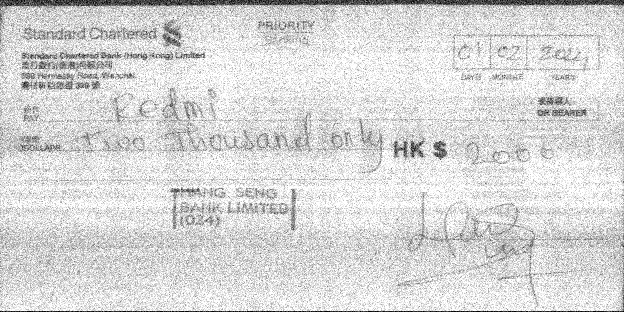 Standard Chartered
PRIORITY
BANKING
Standard Chartered Bank (Hong Kong) Limited
渣打銀行(香港)有限公司
Hennessy Road, Wanchai
01 02 2024
DAYS MONTHS YEARS
PAY Redmi
或持票人
OR BEARER
DOLLARS Two Thousand only HK $ 2000
HANG SENG
BANK LIMITED
(024)